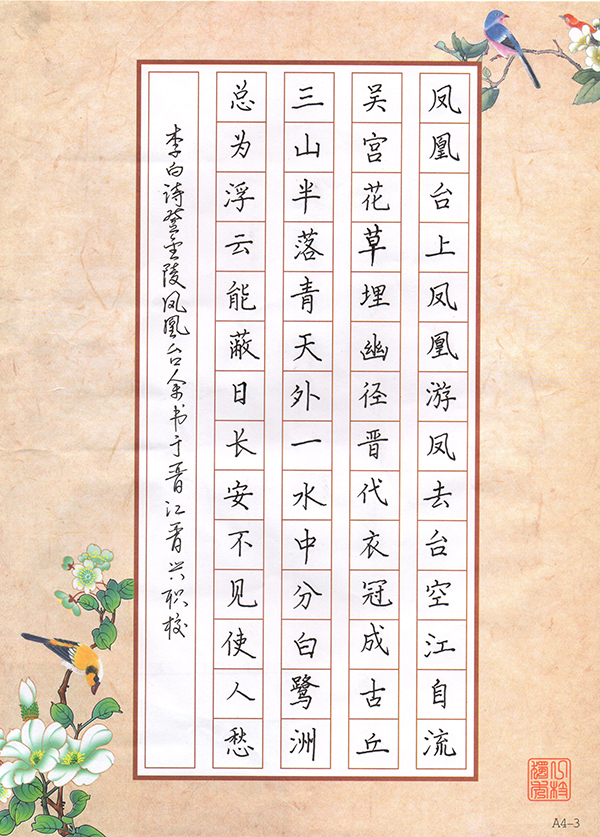 凤凰台上凤凰游凤去台空江自流
吴宫花草埋幽径晋代衣冠成古丘
三山半落青天外一水中分白鹭洲
总为浮云能蔽日长安不见使人愁
李白诗登金陵凤凰台余书于晋江晋兴职校
A4-3